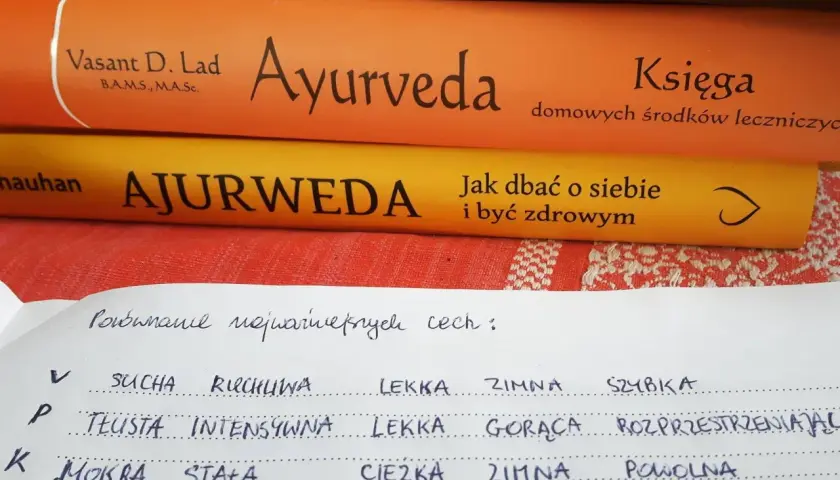 Vasant D. Lad
B.A.M.S., M.A.Sc.
Ayurveda
Księga
domowych środków leczniczyc
hauhan
AJURWEDA
Jak dbać o siebie
i być zdrowym
Porównanie najważniejszych cech:
V SUCHA RUCHLIWA LEKKA ZIMNA SZYBKA
P TŁUSTA INTENSYWNA LEKKA GORĄCA ROZPRZESTRZENIAJĄC
K MOKRA STAŁA CIĘŻKA ZIMNA POWOLNA